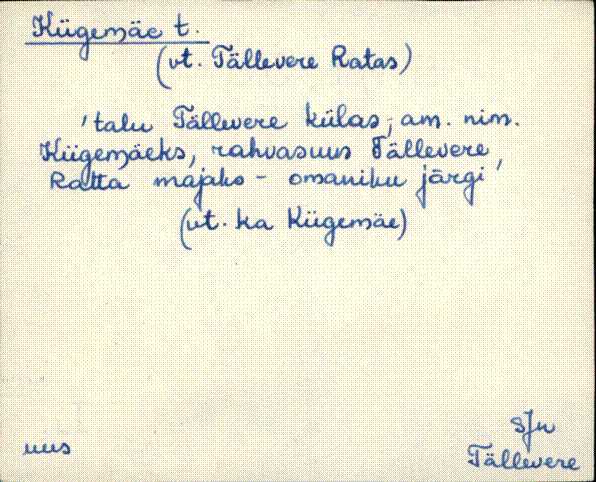 Kügemäe t.
(vt. Tällevere Ratas)
'talu Tällevere külas; am. nim.
Kügemäeks, rahvasuus Tällevere
Ratta majaks - omaniku järgi'
(vt. ka Kügemäe)
SJn
uus
Tällevere